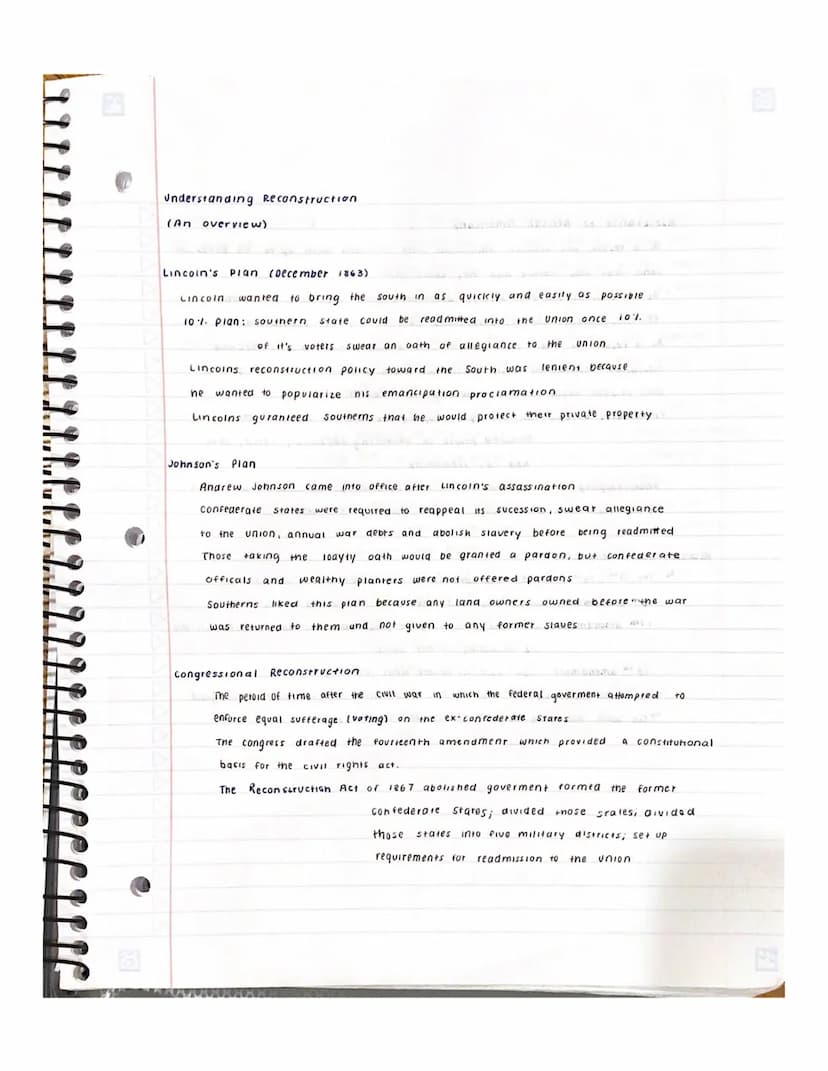 Understanding Reconstruction
(An overview)
Lincoln's Plan (December 1863)
Lincoln wanted to bring the south in as quickly and easily as possible
10% Plan: southern state could be readmitted into the Union once 10%
of it's voters swear an oath of allegiance to the union
Lincolns reconstruction policy toward the South was lenient because
he wanted to popularize his emancipation proclamation
Lincolns guranteed southerns that he would protect their private property
Johnson's Plan
Andrew Johnson came into office after Lincoln's assassination
Confederate states were required to reappeal its sucession, swear allegiance
to the union, annual war debts and abolish slavery before being readmitted
Those taking the loaylty oath would be granted a pardon, but confederate
officals and wealthy planters were not offered pardons
Southerns liked this plan because any land owners owned before the war
was returned to them and not given to any former slaves
Congressional Reconstruction
The peroid of time after the civil war in which the federal goverment attempted to
enforce equal sufferage (voting) on the ex-confederate states
The congress drafted the fourteenth amendment which provided a constitutional
basis for the civil rights act.
The Reconstruction Act of 1867 abolished goverment formed the former
confederate states; divided those states, divided
those states into five military districts; set up
requirements for readmission to the union